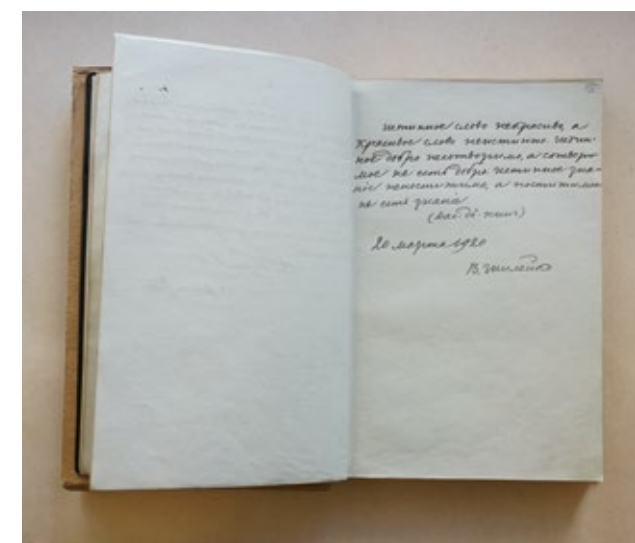 истинное слово некрасиво, а
красивое слово неистинно истин-
ное добро несотворимо, а сотвори-
мое не есть добро истинное зна-
ние непостижимо, а постижимое
не есть знание
20 марта 1920